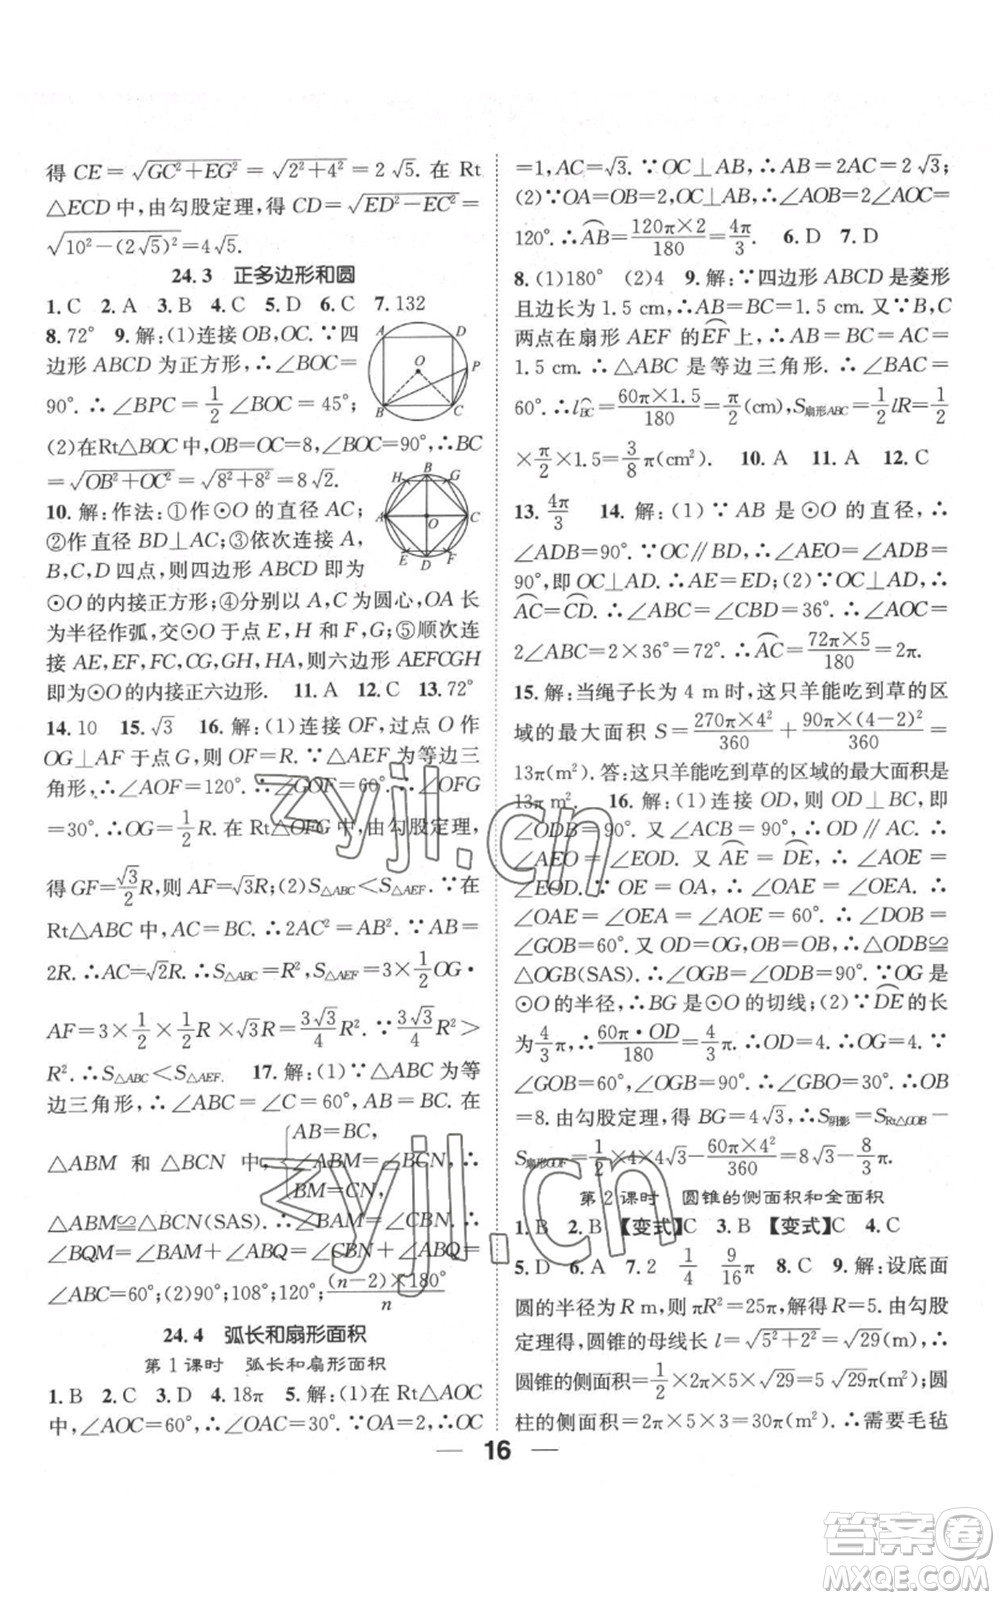 得 CE=√(GC²+EG²)=√(2²+4²)=2√5. 在 Rt
△ECD 中,由勾股定理,得 CD=√(ED²-EC²)=
√(10²-(2√5)²)=4√5.
24.3 正多边形和圆
1. C 2. A 3. B 4. C 5. D 6. C 7. 132
8. 72° 9. 解:(1)连接 OB,OC. ∵四
边形 ABCD 为正方形,∴∠BOC=
90°. ∴∠BPC=1/2∠BOC=45°;
(2)在Rt△BOC 中,OB=OC=8,∠BOC=90°,∴BC
=√(OB²+OC²)=√(8²+8²)=8√2.
10. 解:作法:①作⊙O 的直径 AC;
②作直径 BD⊥AC;③依次连接 A,
B,C,D 四点,则四边形 ABCD 即为
⊙O 的内接正方形;④分别以 A,C 为圆心,OA 长
为半径作弧,交⊙O 于点 E,H 和 F,G;⑤顺次连
接 AE,EF,FC,CG,GH,HA,则六边形 AEFCGH
即为⊙O 的内接正六边形. 11. A 12. C 13. 72°
14. 10 15. √3 16. 解:(1)连接 OF,过点 O 作
OG⊥AF 于点 G,则 OF=R. ∵△AEF 为等边三
角形,∴∠AOF=120°. ∴∠GOF=60°. ∴∠OFG
=30°. ∴OG=1/2R. 在 Rt△OFG 中,由勾股定理,
得 GF=√3/2R,则 AF=√3R;(2)S△ABC<S△AEF. ∵在
Rt△ABC 中,AC=BC. ∴2AC²=AB². ∵AB=
2R. ∴AC=√2R. ∴S△ABC=R²,S△AEF=3×1/2OG·
AF=3×1/2×1/2R×√3R=3√3/4R². ∵3√3/4R²>
R². ∴S△ABC<S△AEF. 17. 解:(1)∵△ABC 为等
边三角形,∴∠ABC=∠C=60°,AB=BC. 在
△ABM 和△BCN 中,{AB=BC, ∠ABM=∠BCN, BM=CN, ∴
△ABM≌△BCN(SAS). ∴∠BAM=∠CBN. ∴
∠BQM=∠BAM+∠ABQ=∠CBN+∠ABQ=
∠ABC=60°;(2)90°;108°;120°;(n-2)×180°/n
24.4 弧长和扇形面积
第 1 课时 弧长和扇形面积
1. B 2. C 3. D 4. 18π 5. 解:(1)在 Rt△AOC
中,∠AOC=60°,∴∠OAC=30°. ∵OA=2,∴OC
=1,AC=√3. ∵OC⊥AB,∴AB=2AC=2√3;
(2)∵OA=OB=2,OC⊥AB,∴∠AOB=2∠AOC=
120°. ∴AB⌒=120π×2/180=4π/3. 6. D 7. D
8. (1)180° (2)4 9. 解:∵四边形 ABCD 是菱形
且边长为 1.5 cm,∴AB=BC=1.5 cm. 又∵B,C
两点在扇形 AEF 的EF⌒上,∴AB=BC=AC=
1.5 cm. ∴△ABC 是等边三角形. ∴∠BAC=
60°. ∴lBC⌒=60π×1.5/180=π/2(cm),S扇形ABC=1/2lR=1/2
×π/2×1.5=3/8π(cm²). 10. A 11. A 12. C
13. 4π/3 14. 解:(1)∵AB 是⊙O 的直径,∴
∠ADB=90°. ∵OC∥BD,∴∠AEO=∠ADB=
90°,即 OC⊥AD. ∴AE=ED;(2)∵OC⊥AD,∴
AC⌒=CD⌒. ∴∠ABC=∠CBD=36°. ∴∠AOC=
2∠ABC=2×36°=72°. ∴AC⌒=72π×5/180=2π.
15. 解:当绳子长为 4 m 时,这只羊能吃到草的区
域的最大面积 S=270π×4²/360+90π×(4-2)²/360=
13π(m²). 答:这只羊能吃到草的区域的最大面积是
13π m². 16. 解:(1)连接 OD,则 OD⊥BC,即
∠ODB=90°. 又∵∠ACB=90°,∴OD∥AC. ∴
∠AEO=∠EOD. 又∵AE⌒=DE⌒,∴∠AOE=
∠EOD. ∴∠AOE=∠AEO. ∵OE=OA,∴
∠OAE=∠OEA=∠AOE=60°. ∴∠DOB=
∠GOB=60°. 又∵OD=OG,OB=OB,∴△ODB≌
△OGB(SAS). ∴∠OGB=∠ODB=90°. ∵OG是
⊙O 的半径,∴BG 是⊙O 的切线;(2)∵DE⌒的长
为4/3π,∴60π·OD/180=4/3π. ∴OD=4. ∴OG=4. ∵
∠GOB=60°,∠OGB=90°. ∴∠GBO=30°. ∴OB
=8. 由勾股定理,得 BG=4√3,∴S阴影=SRt△GOB-
S扇形GOF=1/2×4×4√3-60π×4²/360=8√3-8/3π.
第 2 课时 圆锥的侧面积和全面积
1. B 2. B 【变式】C 3. B 【变式】C 4. C
5. D 6. A 7. 2 1/4 9/16π 8. C 9. 解:设底面
圆的半径为 R m,则 πR²=25π,解得 R=5. 由勾股
定理得,圆锥的母线长=√(5²+2²)=√29(m),∴
圆锥的侧面积=1/2×2π×5×√29=5√29π(m²);圆
柱的侧面积=2π×5×3=30π(m²). ∴需要毛毡
16
A
D
O
P
B
C
B
H
G
A
O
C
E
D
F
zyjl.cn
zyjl.cn
答案圈
MXQE.COM